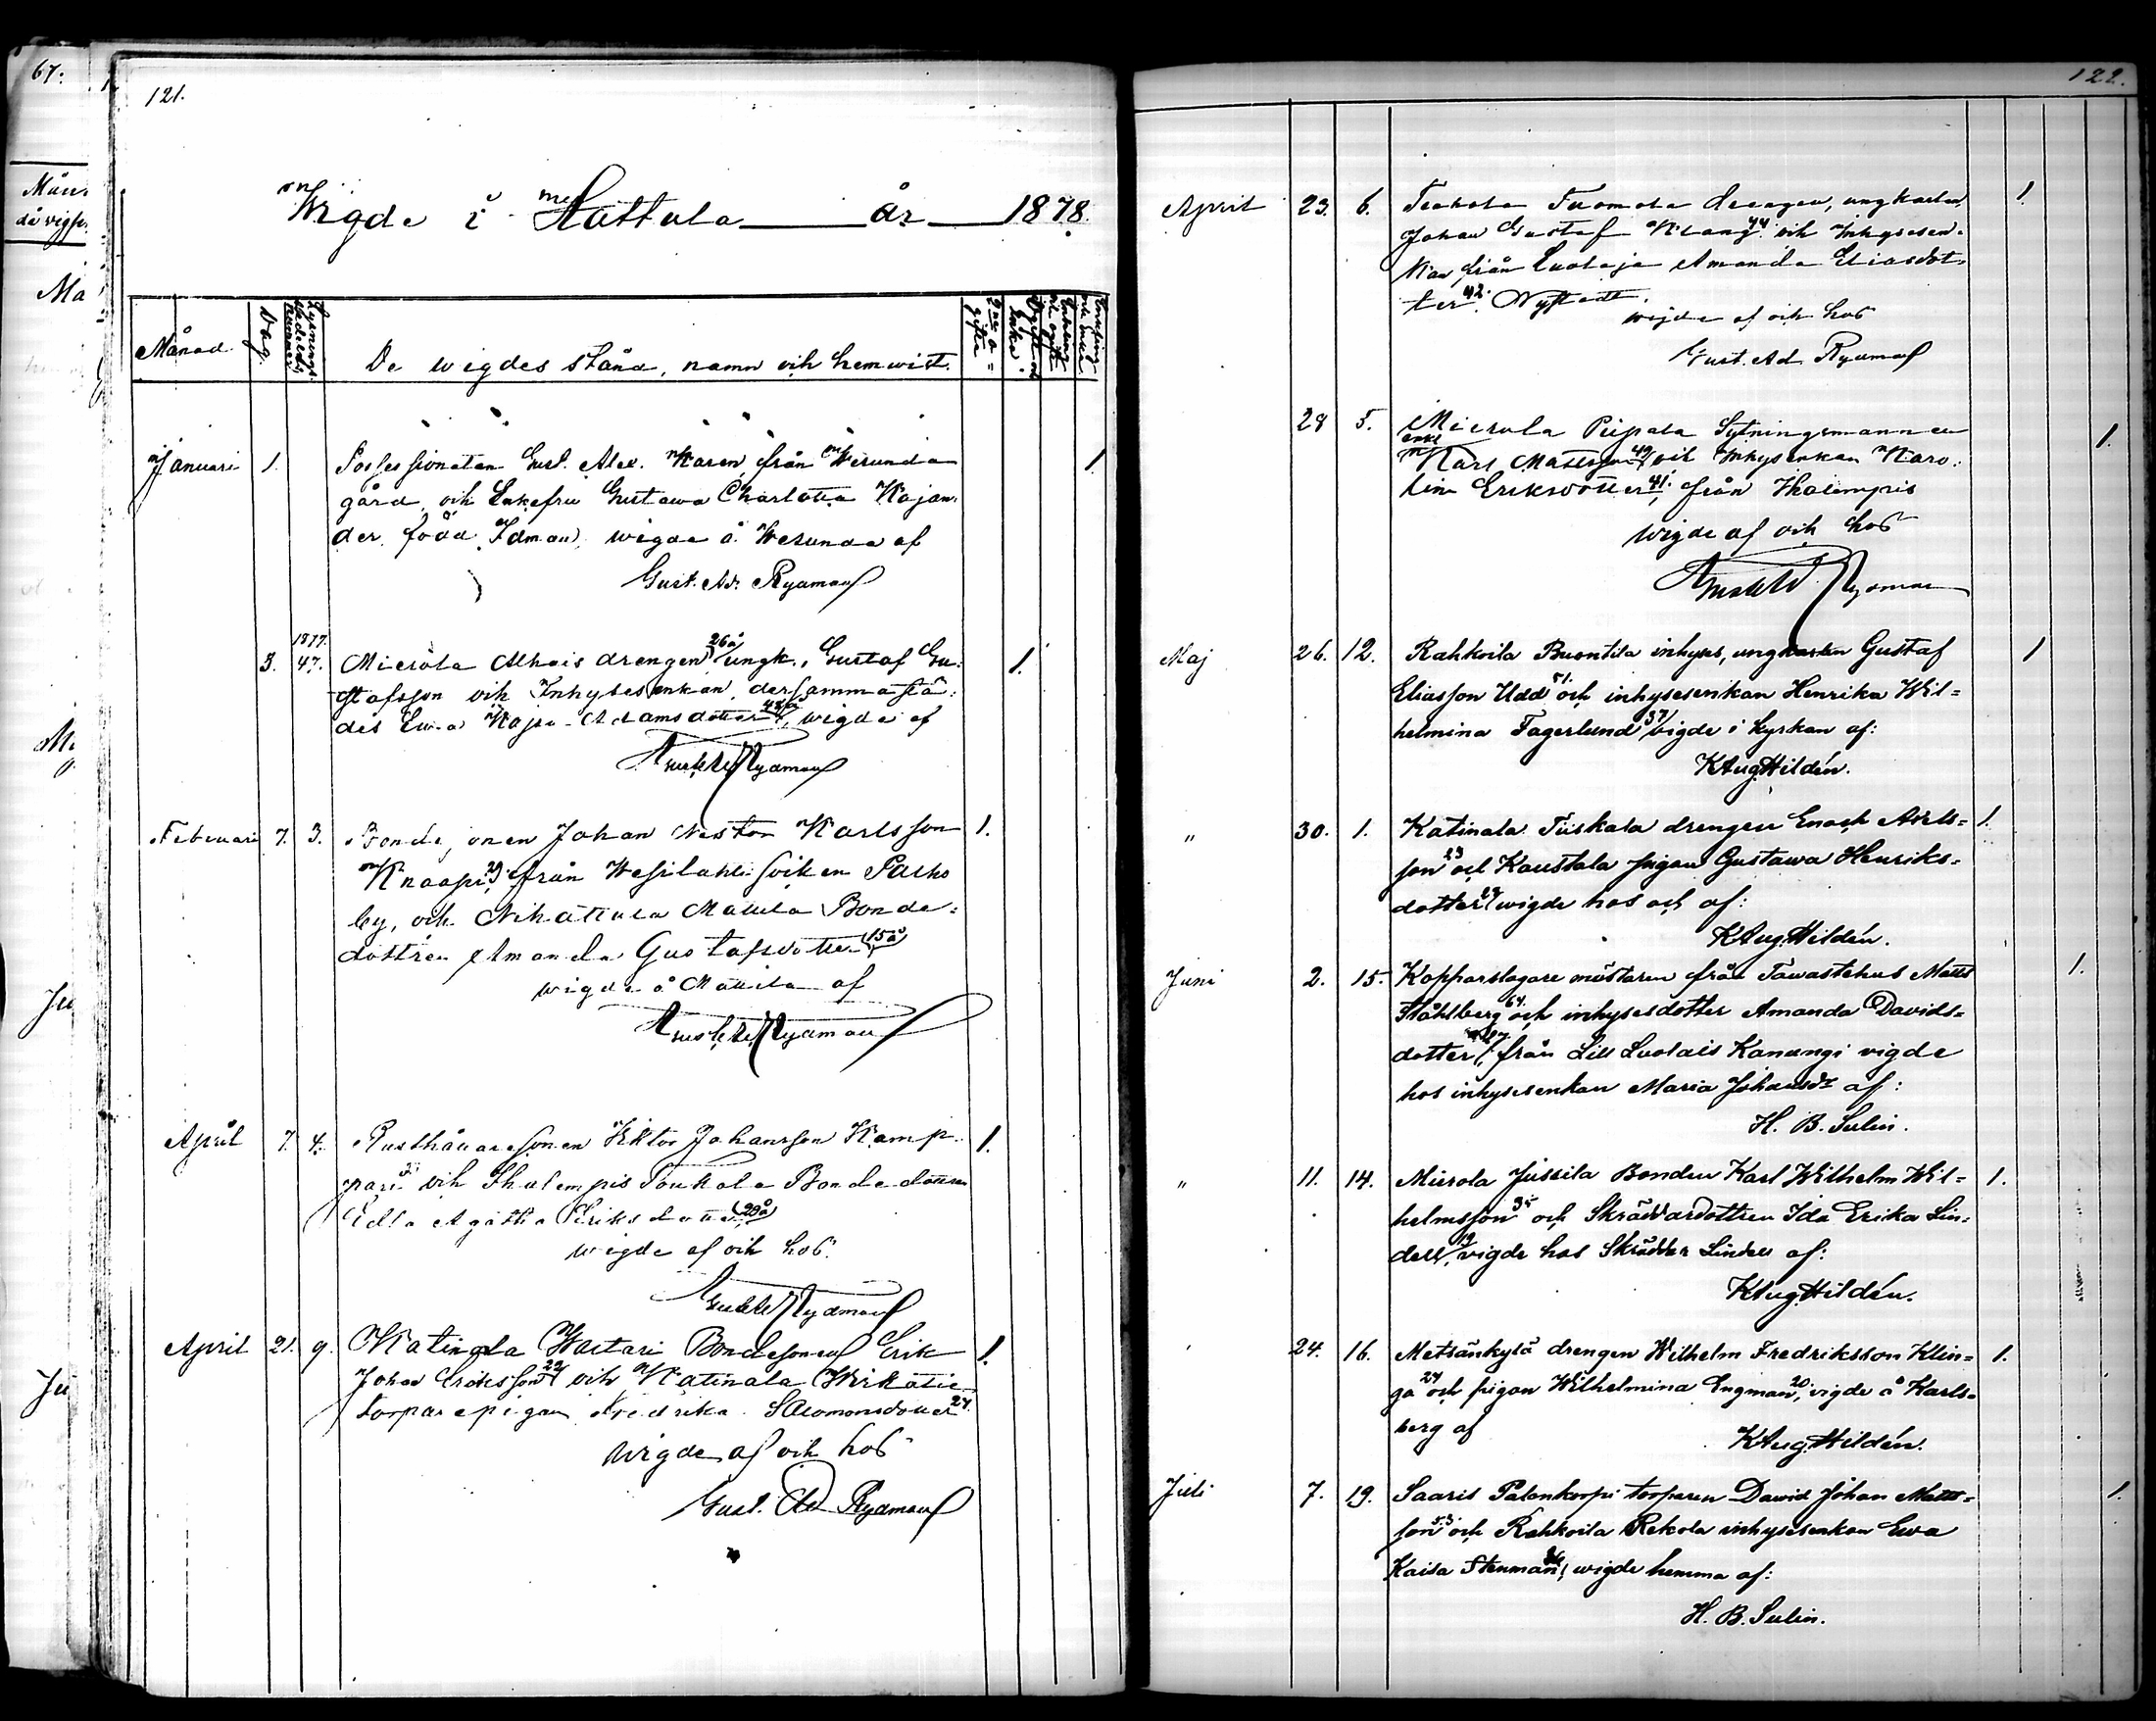 67:
Mån.
då vigse.
Ma
Ju
Ju
121.
Wigde i Hattula år 1878.
Månad.
Dag.
Lysnings
sedelns
Nummer.
De wigdes stånd, namn och hemwist.
Januari 1. Possessionaten Gust. Alex. Karen från Wesunda 1.
gård, och Enkefru Gustawa Charlotta Kajan-
der född Idman, wigde å Wesunda af
Gust. Ad. Rydman
1877.
3. 47. Mierola Alhais drengen, 26å ungk., Gustaf Gu- 1.
stafsson och Inhysesenkan, dersammastä-
des Ewa Kajsa Adamsdotter, wigde af
Gust. Ad. Rydman
Februari 7. 3. Bondesonen Johan Nestor Karlsson 1.
Knaapi, från Wesilahti socken Palho
by, och Nihattula Mattila Bonde-
dottren Amanda Gustafsdotter (15å)
wigde å Mattila af
Gust. Ad. Rydman
April 7. 4. Rusthållaresonen Viktor Johansson Kamp- 1.
pari och Ihalempis Toukola Bondedottren
Edla Agatha Eriksdotter, (20å)
wigde af och hos
Gust. Ad. Rydman
April 21. 9. Katinala Wartari Bondesonen Erik 1.
Johan Eriksson 22 och Katinala
torparepigan Fredrika Salomonsdotter 27.
wigde af och hos
Gust. Ad Rydman
122.
April 23. 6. Tenhola Tuomola drengen, ungkarlen, 1.
Johan Gustaf Krang 44 och Inhysesen-
kan från Luolaja Amanda Eliasdot-
ter 42. Nystedt.
wigde af och hos
Gust. Ad Rydman
28 5. Mierola Piipala Sytningsmannen 1.
enkl
Karl Mattsson 49, och Inhysenkan Karo-
lina Eriksdotter 41. från Ihalempis
wigde af och hos
Gust. Ad. Rydman
Maj 26. 12. Rahkoila Buontila inhyses, ungkarlen Gustaf 1
Eliasson Udd 51. och inhysesenkan Henrika Wil=
helmina Fagerlund 37/ vigde i kyrkan af:
KAug.Hildén.
" 30. 1. Katinala Tiiskala drengen Enoch Axels= 1.
son 23 och Kaustala pigan Gustawa Henriks=
dotter 23/ wigde hos och af:
KAug.Hildén.
Juni 2. 15. Kopparslagare mästaren från Tawastehus Matts 1.
Ståhlberg 64. och inhysesdotter Amanda Davids=
dotter 27, från Lill Luolais Kanungi vigde
hos inhysesenkan Maria Johansdr af:
H. B. Sulin.
" 11. 14. Mierola Jussila Bonden Karl Wilhelm Wil= 1.
helmsson 35 och Skräddardottren Ida Erika Lin=
dell, 19 vigde hos Skräddar Lindell af:
KAug.Hildén.
24. 16. Metsänkylä drengen Wilhelm Fredriksson Klin= 1.
ga 24 och pigan Wilhelmina Engman, 20 vigde å Karls=
berg af
KAug.Hildén.
Juli 7. 19. Saaris Palonkorpi torparen Dawid Johan Matts= 1.
son 53. och Rahkoila Rekola inhysesenkan Ewa
Kaisa Stenman, wigde hemma af:
H. B. Sulin.